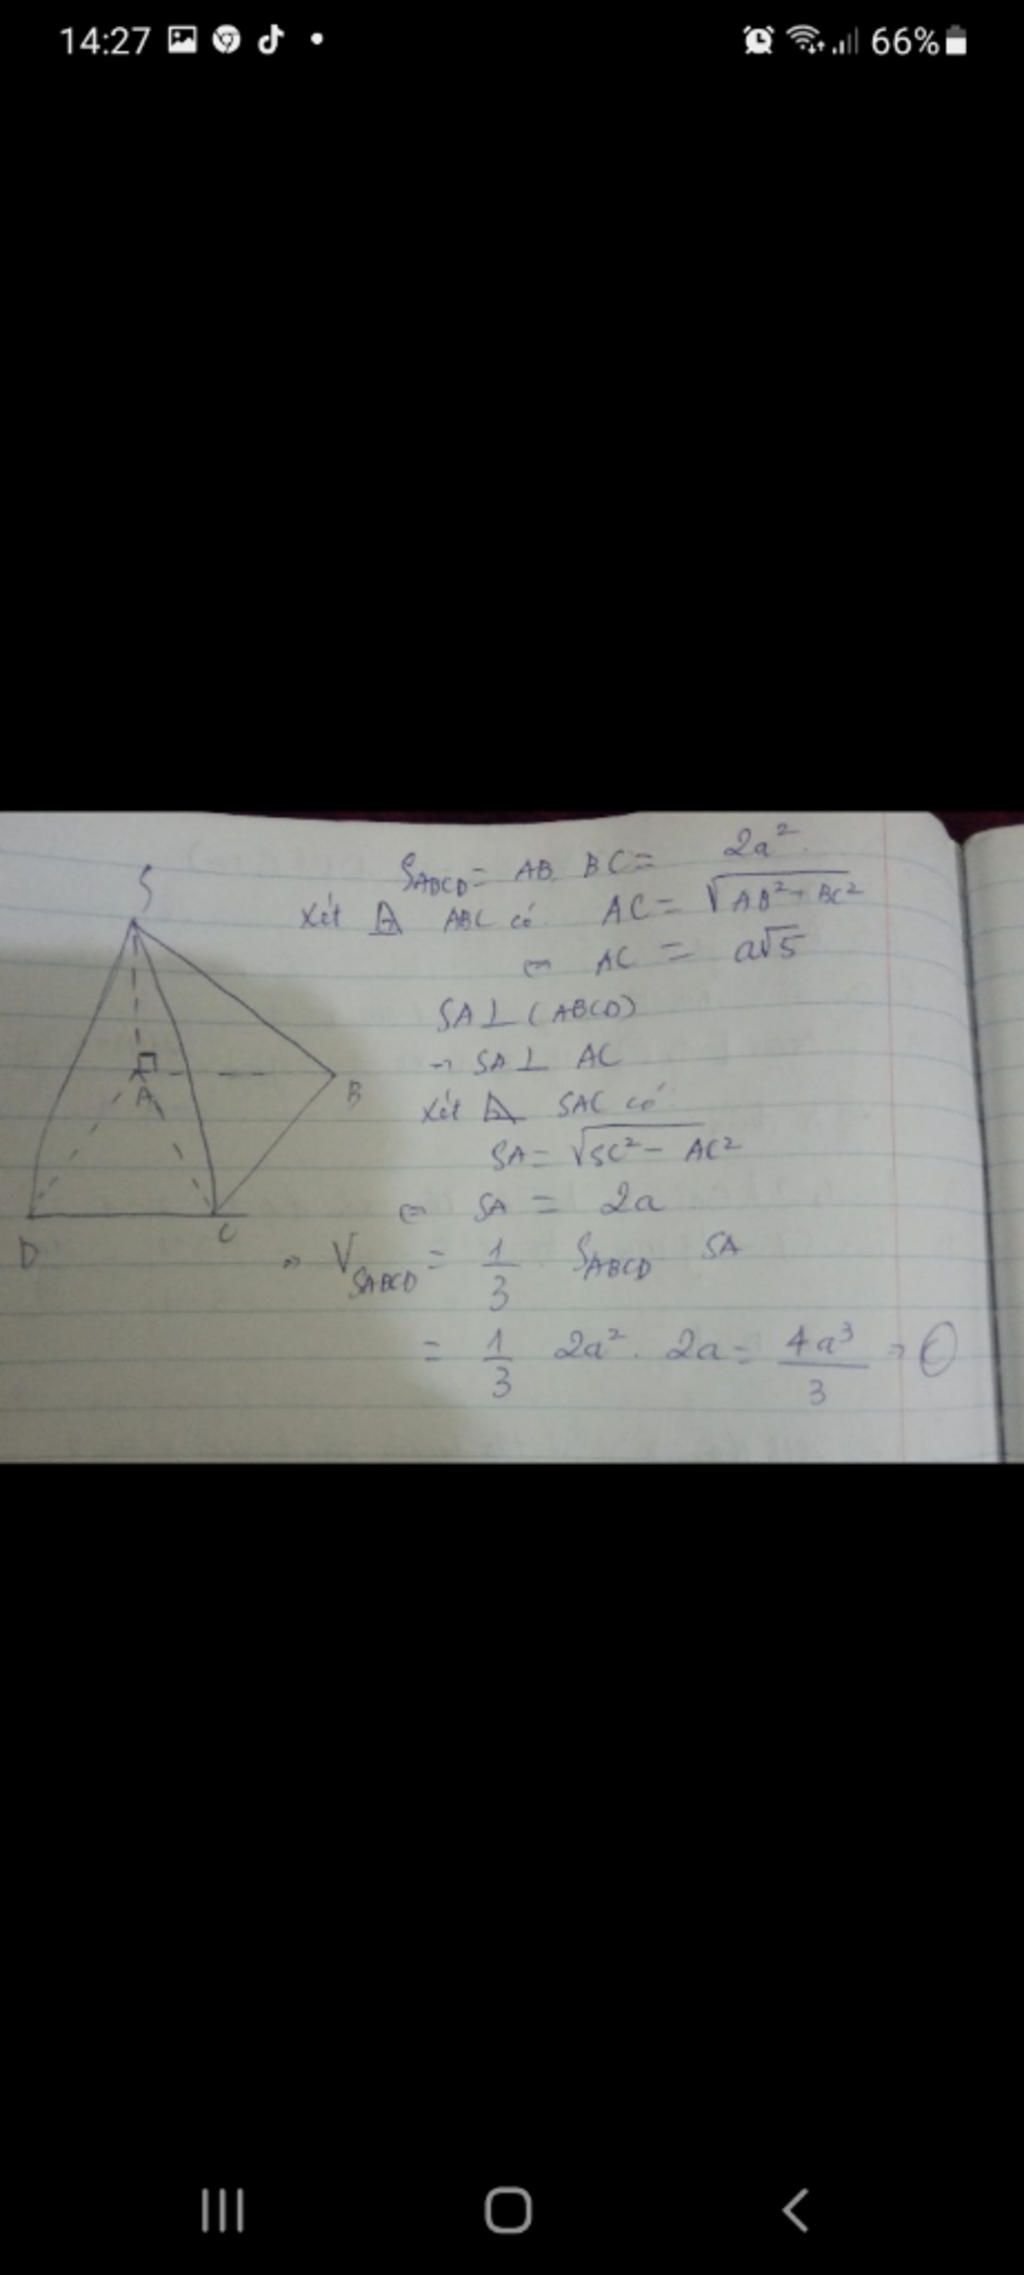 14:27
66%
S
S_ABCD = AB BC = 2a²
Xét ABC có AC = √AB² + BC²
⇔ AC = a√5
SA ⊥ (ABCD)
→ SA ⊥ AC
A
B
Xét SAC có
SA = √SC² - AC²
⇔ SA = 2a
D
C
⇒ V_SABCD = 1/3 S_ABCD SA
= 1/3 2a² . 2a = 4a³/3 ⇒ C